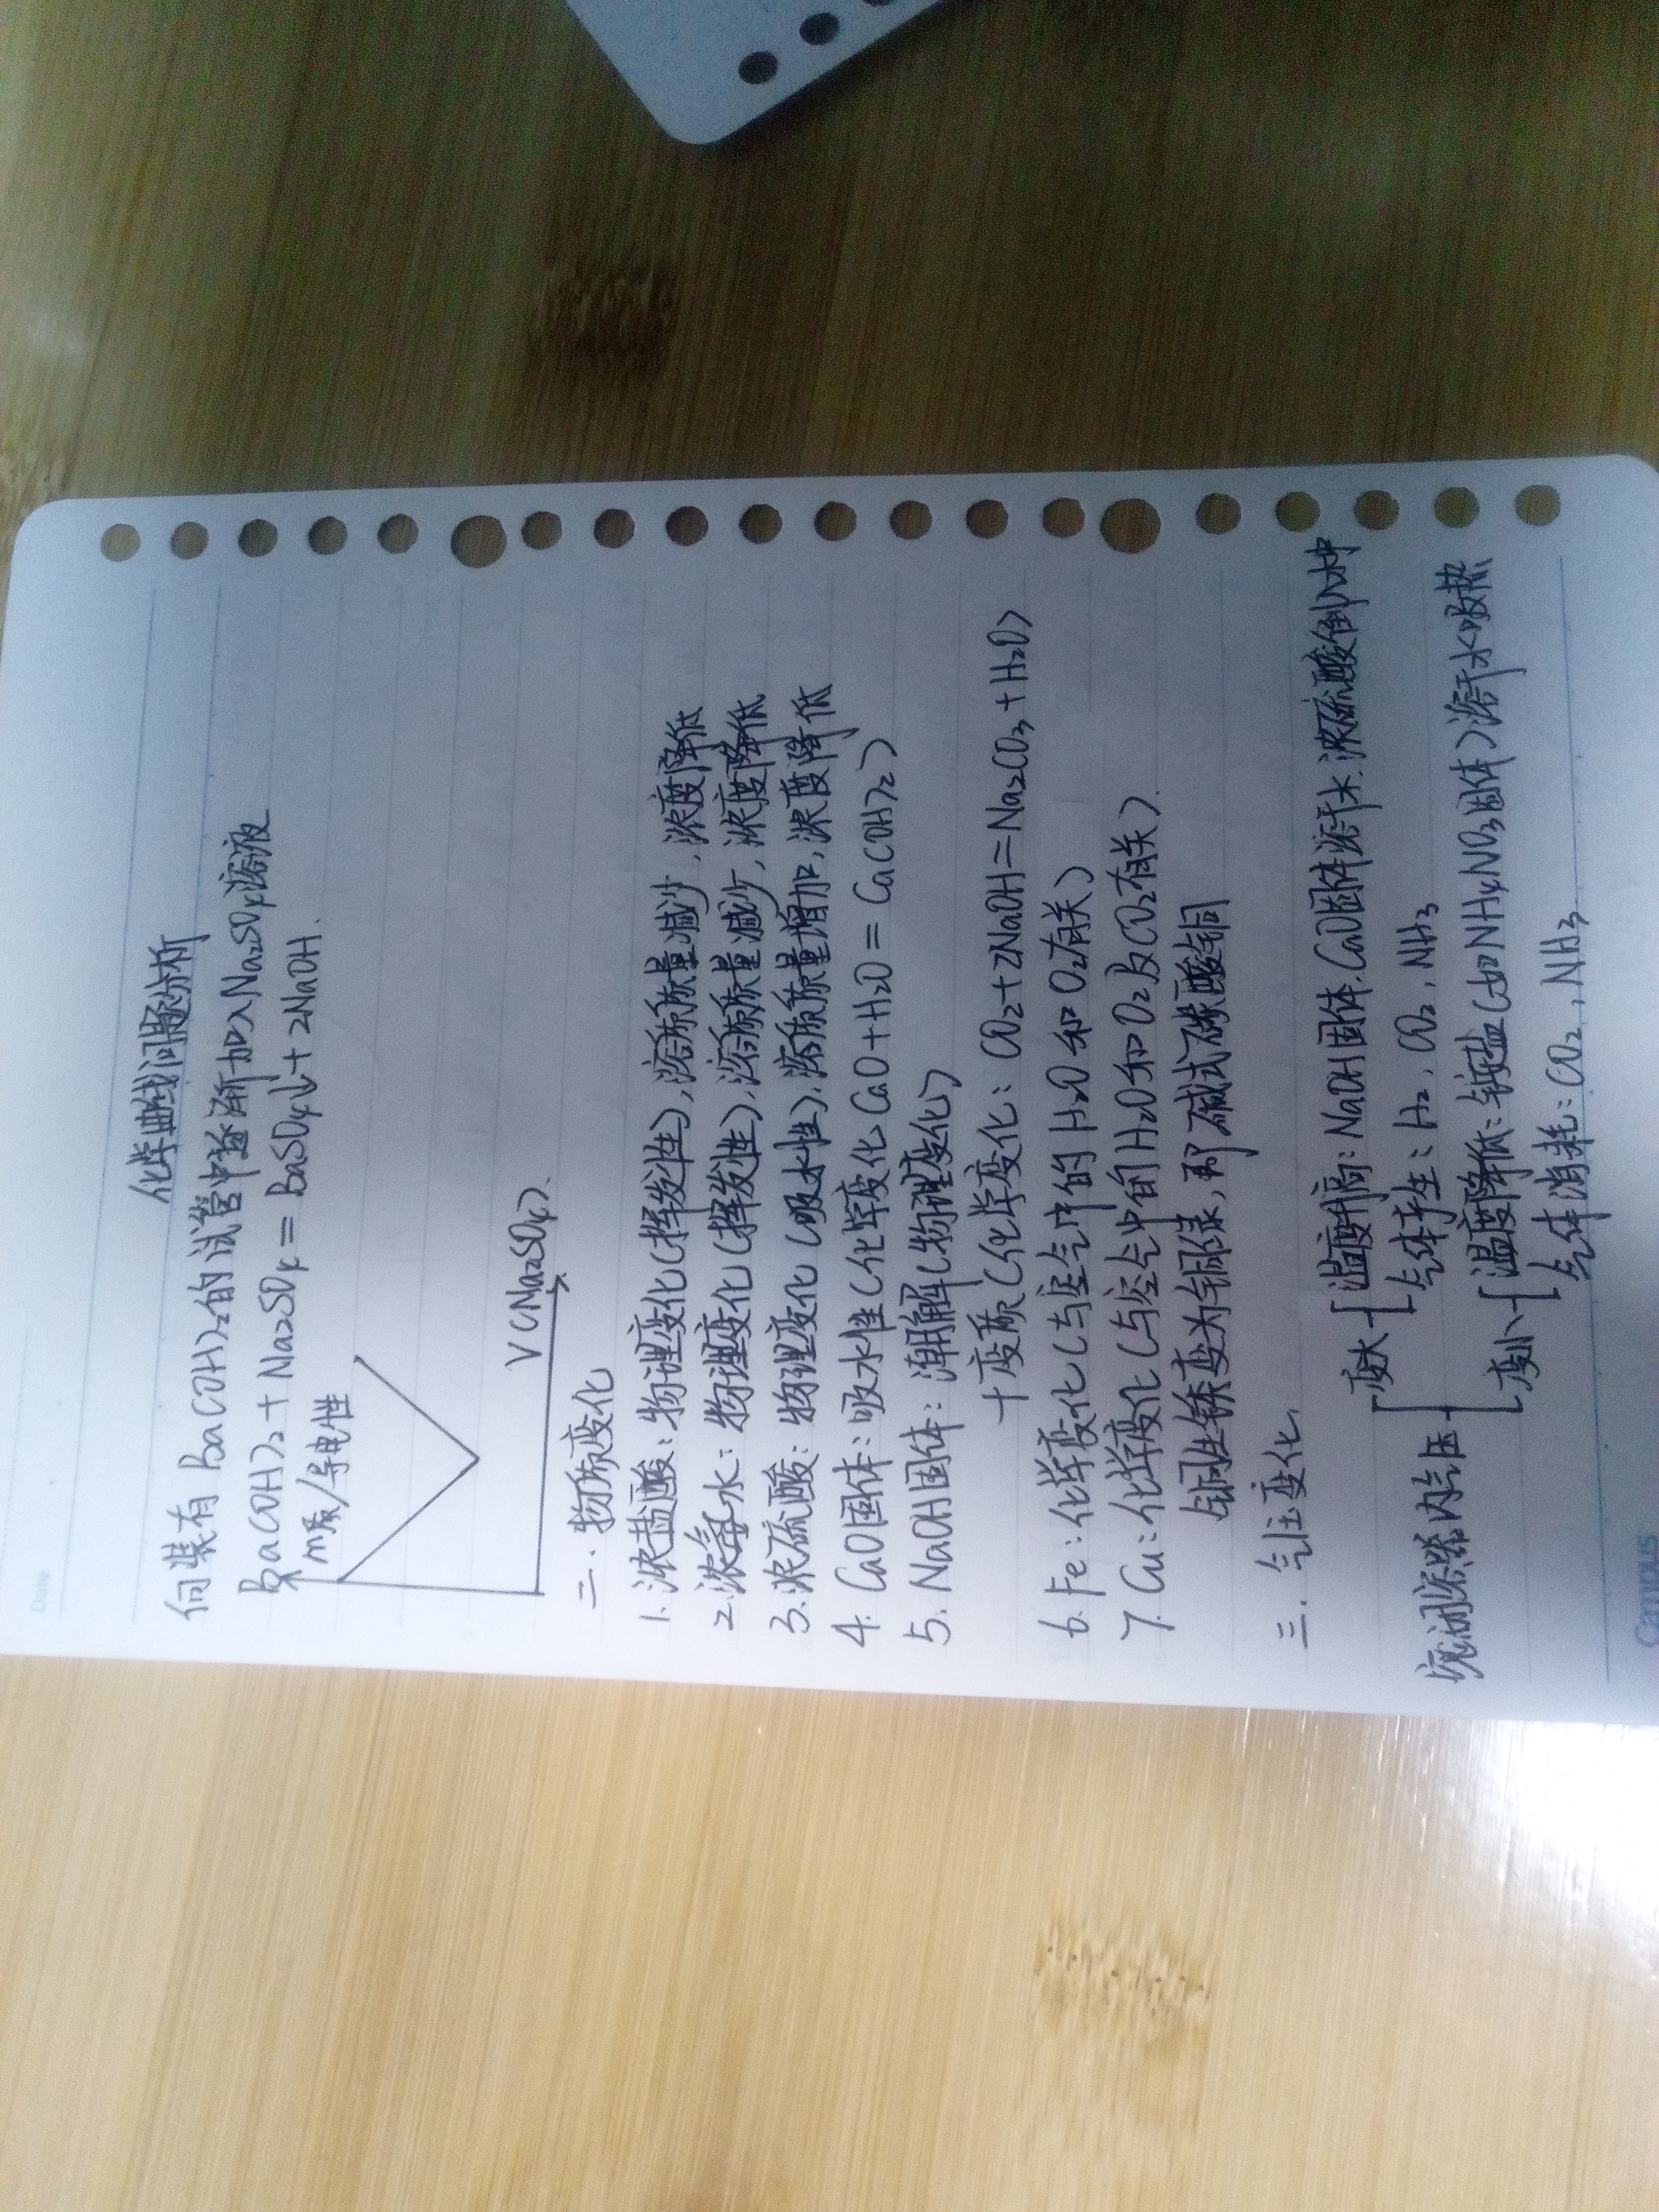 Date
化学曲线问题分析
向装有Ba(OH)₂的试管中逐渐加入Na₂SO₄溶液
Ba(OH)₂ + Na₂SO₄ = BaSO₄↓ + 2NaOH.
m质/导电性
V(Na₂SO₄).
二.物质变化
1.浓盐酸:物理变化(挥发性),溶质质量减少,浓度降低
2.浓氨水:物理变化(挥发性),溶质质量减少,浓度降低
3.浓硫酸:物理变化(吸水性),溶质质量增加,浓度降低
4.CaO固体:吸水性(化学变化 CaO+H₂O = Ca(OH)₂)
5.NaOH固体:潮解(物理变化)
十变质(化学变化:CO₂+2NaOH=Na₂CO₃+H₂O)
6.Fe:化学变化(与空气中的H₂O和O₂有关)
7.Cu:化学变化(与空气中的H₂O和O₂及CO₂有关).
铜生锈变为铜绿,即碱式碳酸铜
三.气压变化.
密闭容器内气压
变大
温度升高:NaOH固体.CaO固体溶于水.浓硫酸倒入水中
气体产生:H₂,CO₂,NH₃
变小
温度降低:铵盐(如NH₄NO₃固体)溶于水吸热
气体消耗:CO₂,NH₃
Campus